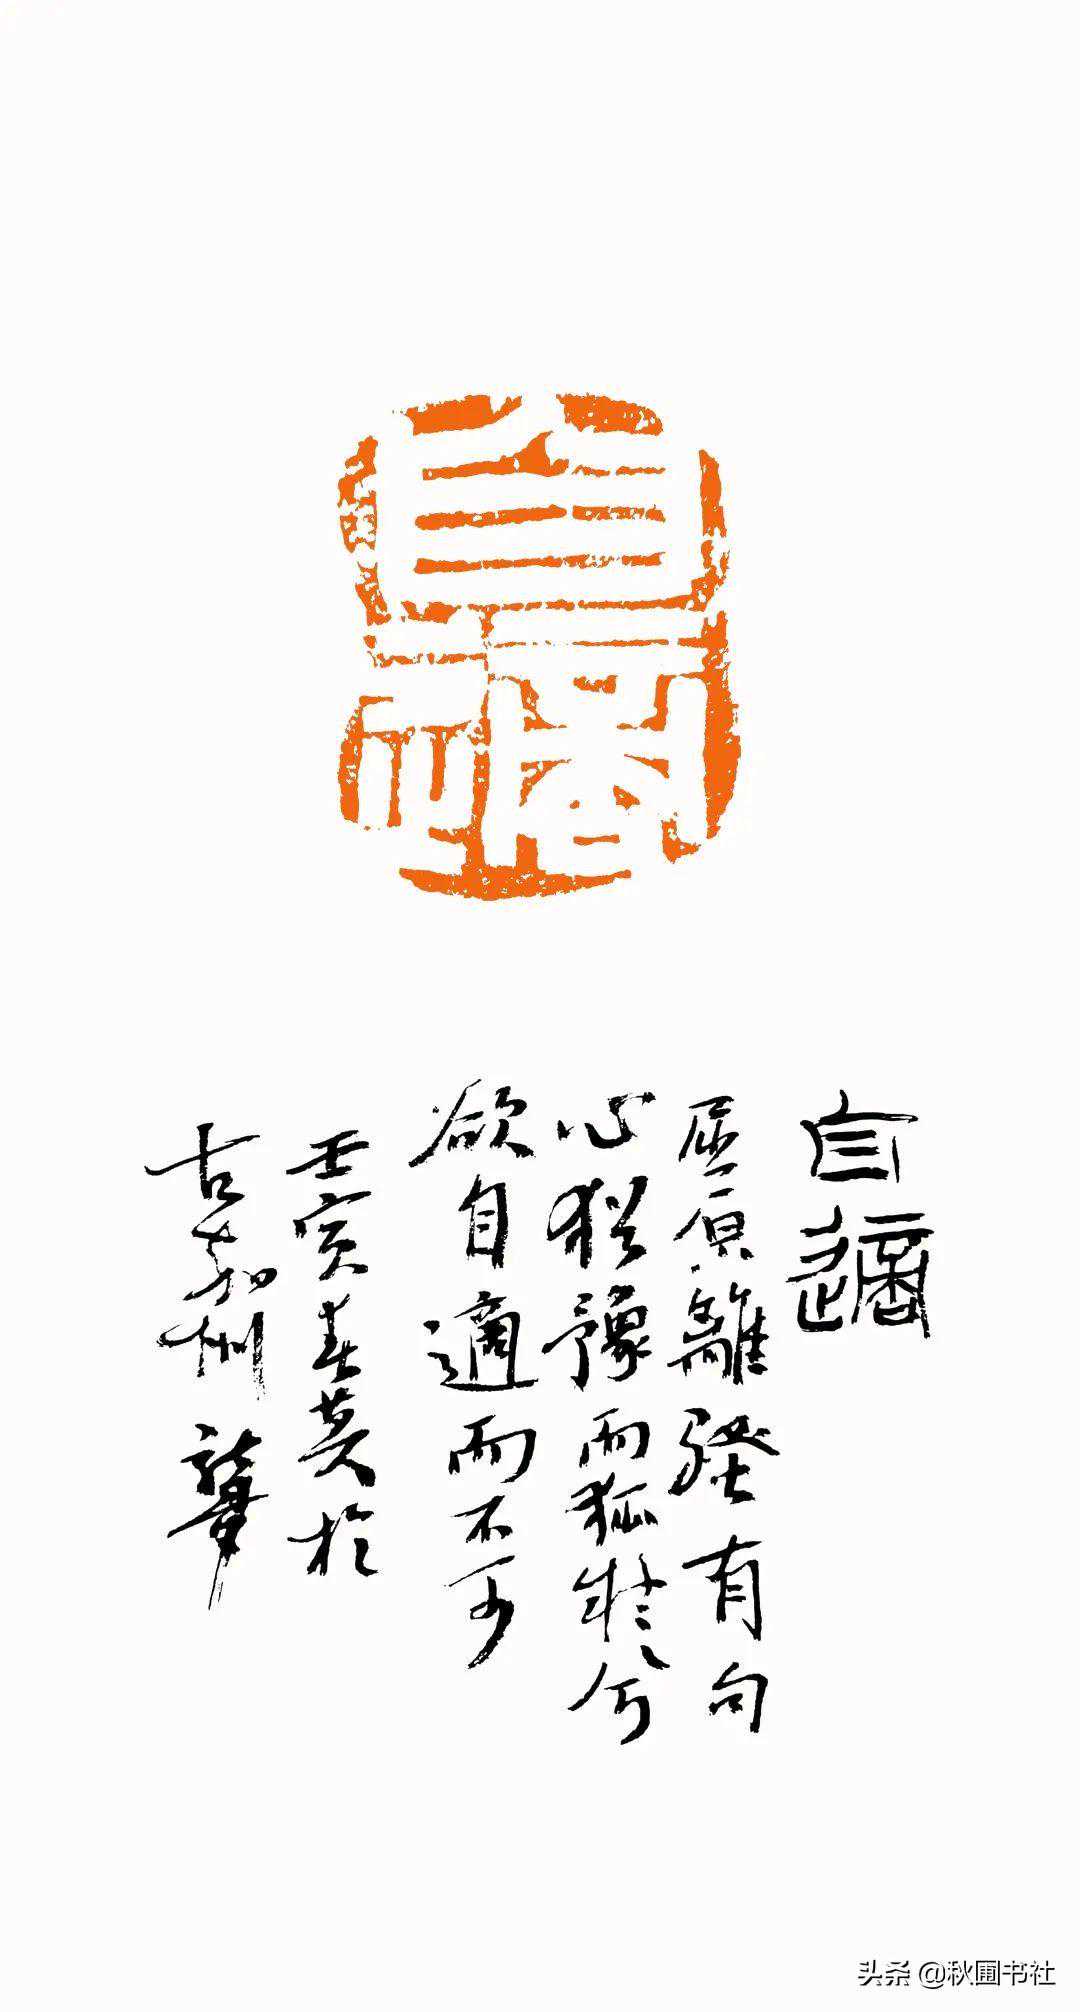 自適
自適
屈原離騷有句
心猶豫而狐疑兮
欲自適而不可
壬寅春莫於
古嘉州龔
头条 @秋圃书社